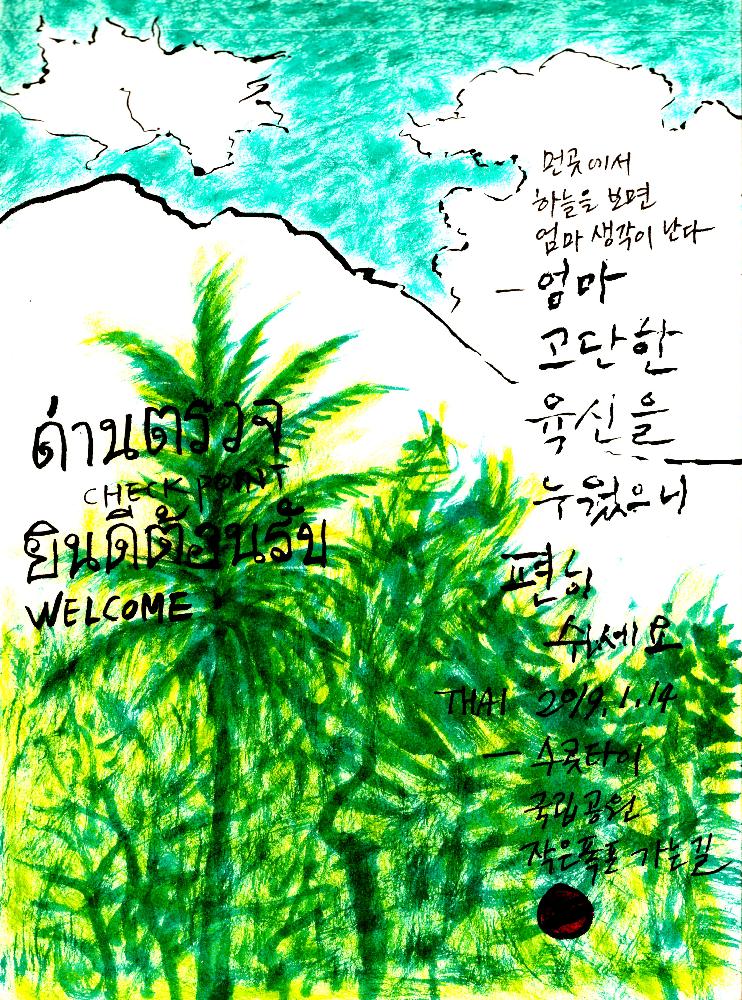 먼곳에서
하늘을 보면
엄마 생각이 난다
— 엄마
고단한
육신을
누웠으니
편히
쉬세요
THAI 2019.1.14
— 수콧타이
국립공원
작은폭포 가는길
ด่านตรวจ
CHECK POINT
ยินดีต้อนรับ
WELCOME